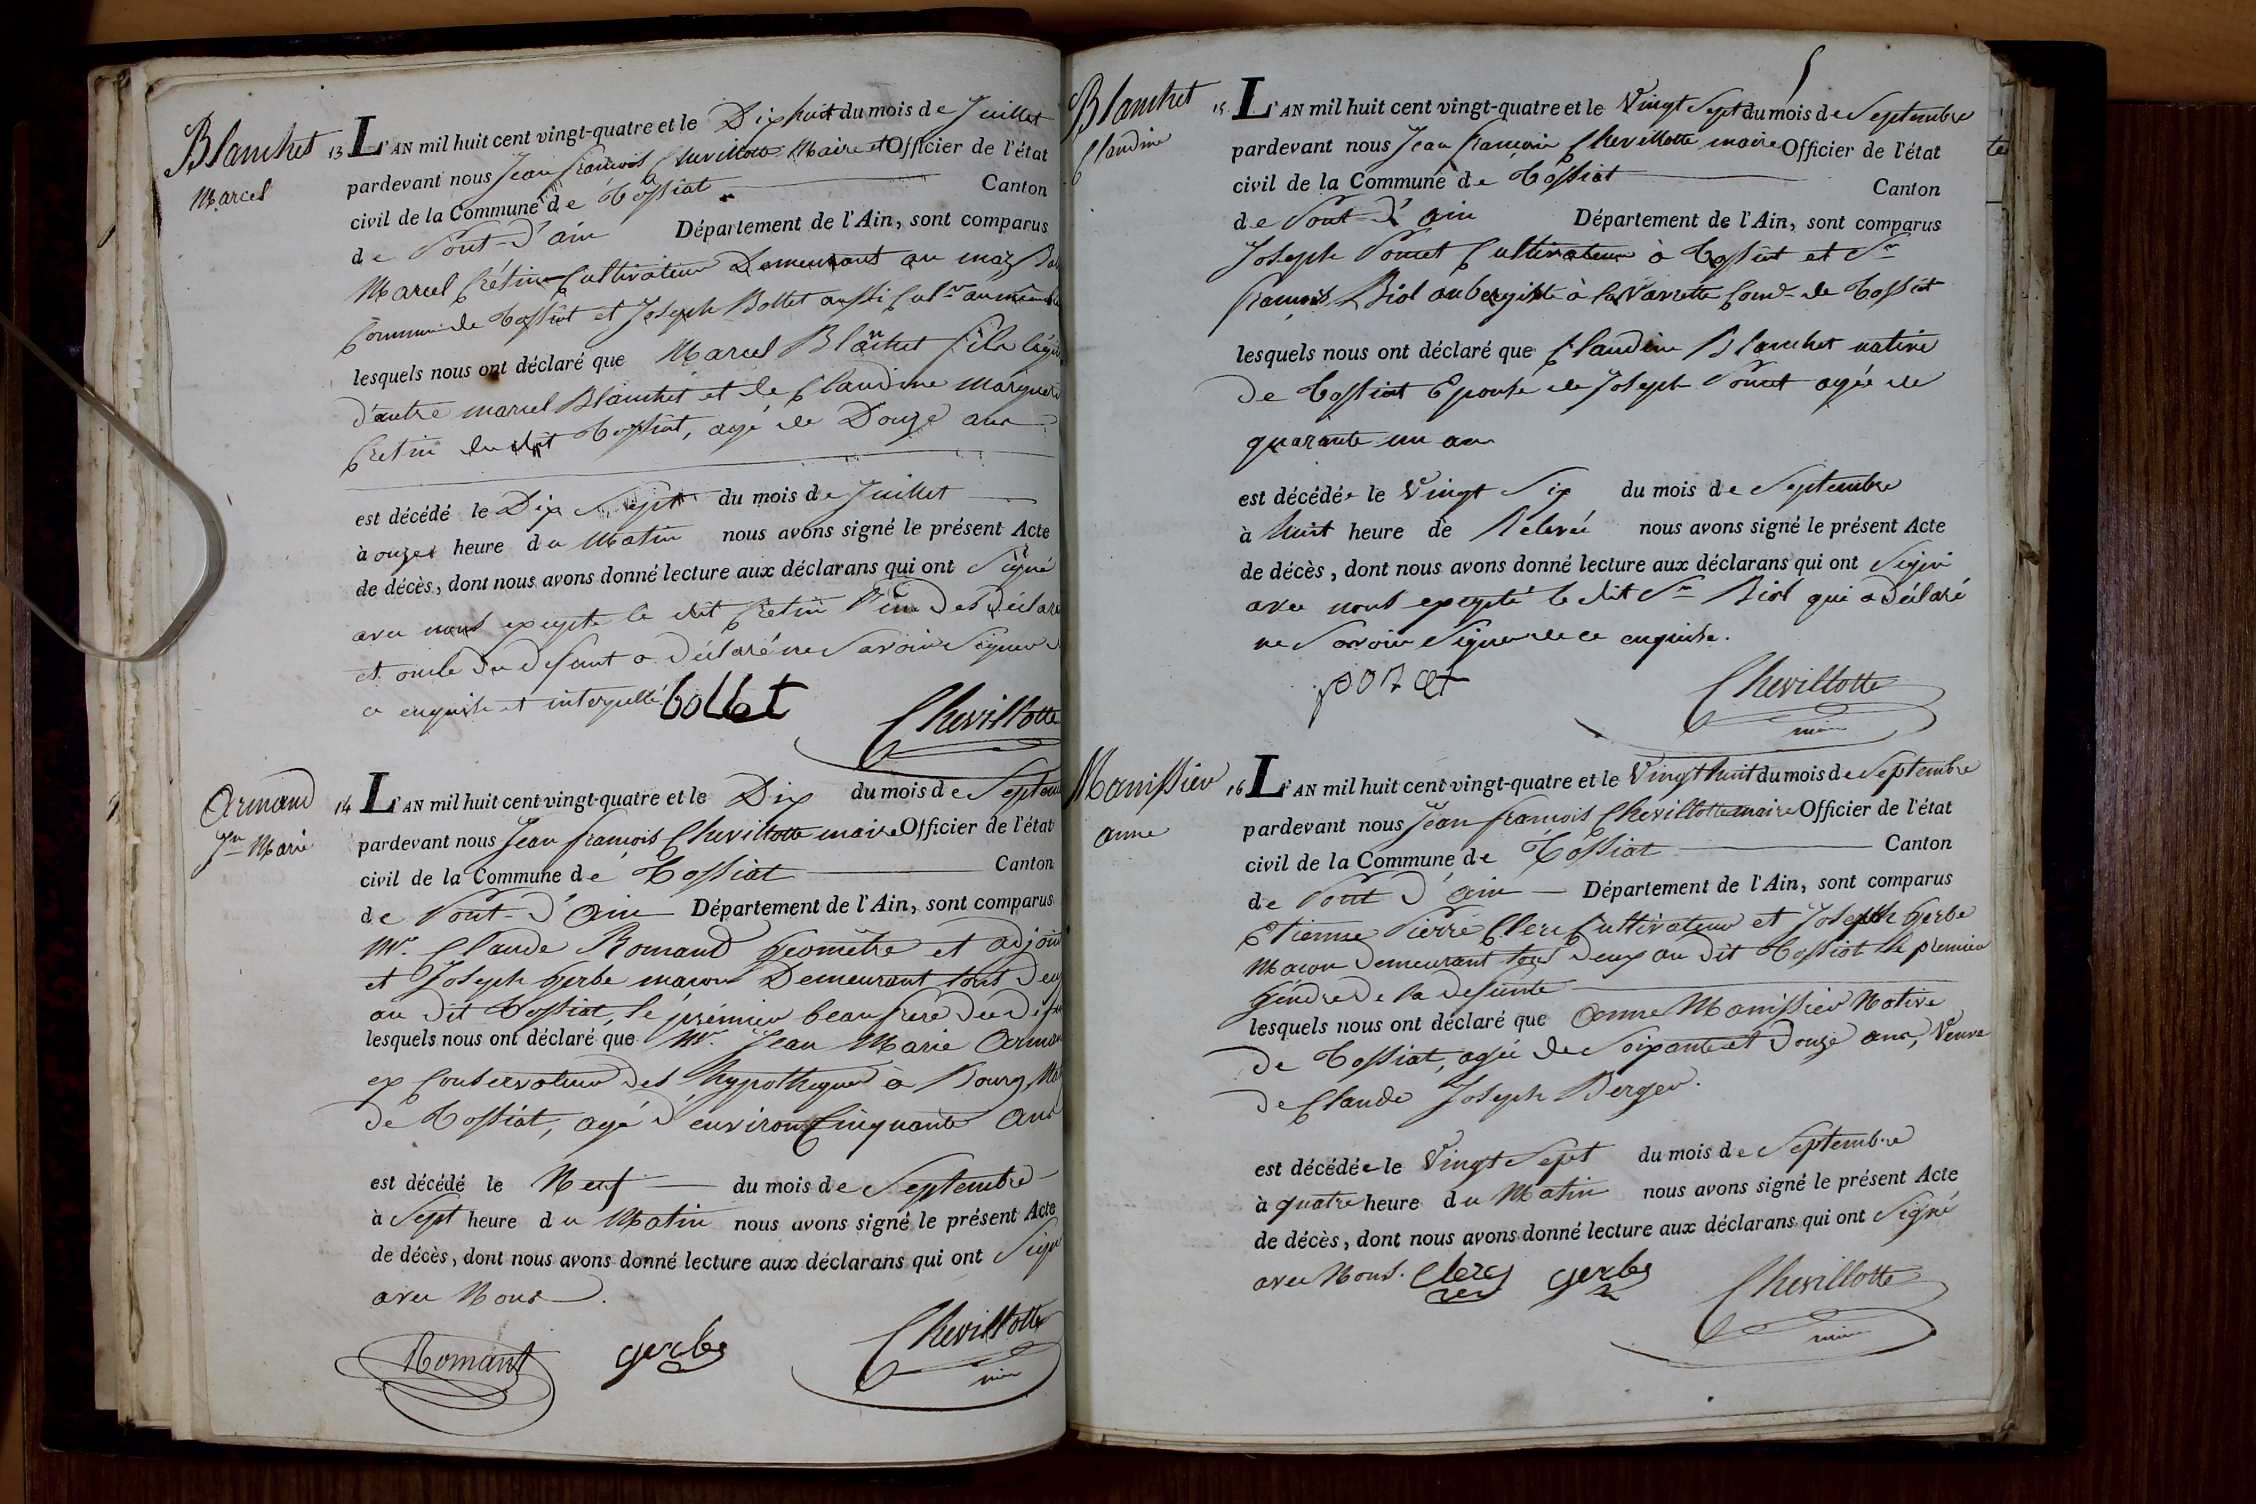 Blanchet
Marcel
13 L'AN mil huit cent vingt-quatre et le Dix huit du mois de Juillet
pardevant nous Jean françois Chevillotte Maire et Officier de l'état
civil de la Commune de Tossiat Canton
de Pont-d'ain Département de l'Ain, sont comparus
Marcel Crétin Cultivateur Demeurant au maz
Commune de Tossiat et Joseph Bollet aussi Culr au même
lesquels nous ont déclaré que Marcel Blanchet fils
d'autre marcel Blanchet et de Claudine
Cretin du dit Tossiat, agé de Douze ans
est décédé le Dix Sept du mois de Juillet
à onze heure du Matin nous avons signé le présent Acte
de décès, dont nous avons donné lecture aux déclarans qui ont Signé
avec nous excepté le dit Cretin l'un des
et oncle du defunt a déclaré ne Savoir Signer
ce enquis et interpellé
bollet
Chevillotte
Armand
Jn Marie
14 L'AN mil huit cent vingt-quatre et le Dix du mois de
pardevant nous Jean françois Chevillotte maire Officier de l'état
civil de la Commune de Tossiat Canton
de Pont-d'Ain Département de l'Ain, sont comparus
Mr. Claude Romand Géomètre et
et Joseph Gerbe maçon Demeurant tous
au Dit Tossiat, le prémier beau frère du
lesquels nous ont déclaré que Mr. Jean Marie
ex Conservateur des hypotheques à Bourg
de Tossiat, agé d'environ Cinquante Ans
est décédé le Neuf du mois de Septembre
à Sept heure du Matin nous avons signé le présent Acte
de décès, dont nous avons donné lecture aux déclarans qui ont
avec Nous.
Romand
gerbe
Chevillotte
Blanchet
Claudine
15 L'AN mil huit cent vingt-quatre et le Vingt Sept du mois de Septembre
pardevant nous Jean françois Chevillotte maire Officier de l'état
civil de la Commune de Tossiat Canton
de Pont-d'ain Département de l'Ain, sont comparus
Joseph Poncet Cultivateur à Tossiat et Sr
françois Biol aubergiste à la Vavrette de Tossiat
lesquels nous ont déclaré que Claudine Blanchet native
de Tossiat Epouse de Joseph Poncet agée de
quarante un an
est décédée le Vingt Six du mois de Septembre
à huit heure de Relevée nous avons signé le présent Acte
de décès, dont nous avons donné lecture aux déclarans qui ont Signé
avec nous excepté le dit Sr Biol qui a Déclaré
ne Savoir Signer de ce enquis.
Chevillotte
maire
Manissier
anne
16 L'AN mil huit cent vingt-quatre et le Vingt huit du mois de Septembre
pardevant nous Jean françois Chevillotte maire Officier de l'état
civil de la Commune de Tossiat Canton
de Pont d'ain Département de l'Ain, sont comparus
Etienne Pierre Clerc Cultivateur et Joseph Gerbe
Maçon Demeurant tous deux au dit Tossiat le premier
Gendre de la defunte
lesquels nous ont déclaré que Anne Manissier Native
de Tossiat, agée de Soixante et Douze ans, Veuve
de Claude Joseph Berger.
est décédée le Vingt Sept du mois de Septembre
à quatre heure du Matin nous avons signé le présent Acte
de décès, dont nous avons donné lecture aux déclarans qui ont Signé
avec Nous.
Clerc
gerbe
Chevillotte
maire